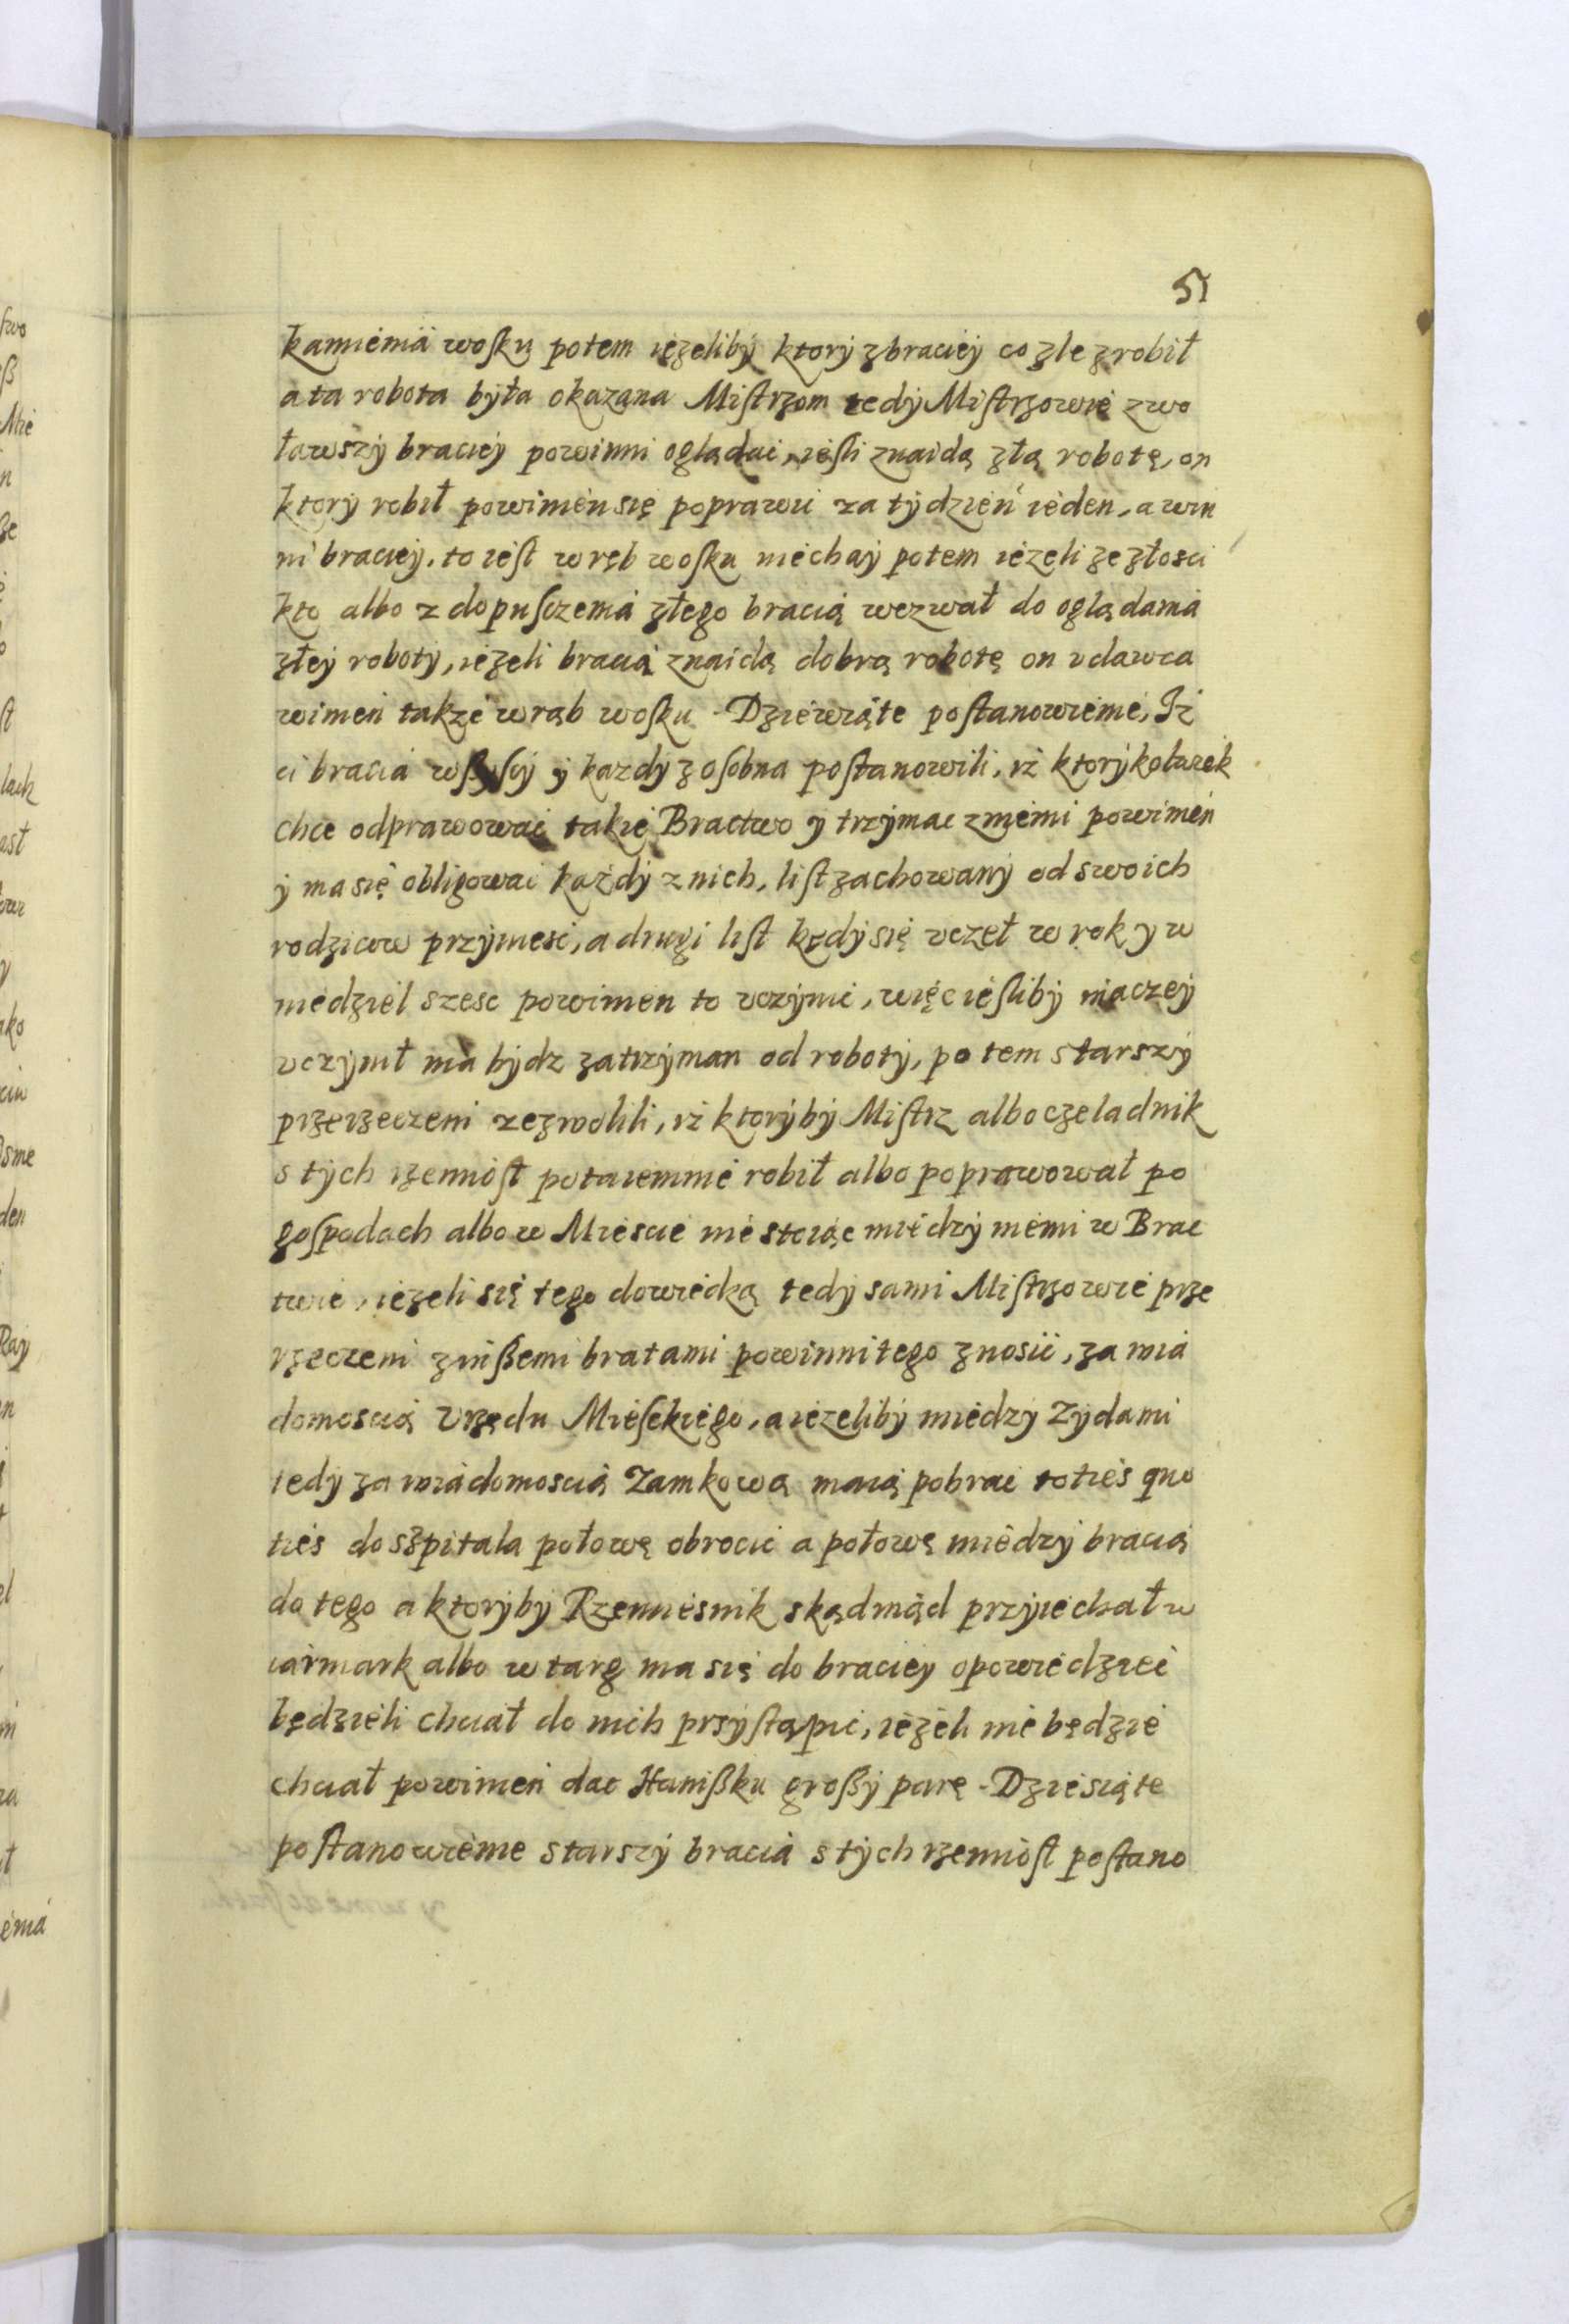 51
kamienia wosku potem ieżeliby ktory z braciey co zle zrobił
a ta robota była okazana Mistrzom tedy Mistrzowie zwo
ławszy braciey powinni oglądac, ieśli znaidą złą robotę, on
ktory robił powinien się poprawic za tydzień ieden, a win
ni braciey, to iest w ręb wosku niechay potem ieżeli ze złosci
kto albo z dopusczenia złego bracią wezwał do oglądania
złey roboty, ieżeli bracią znaidą dobrą robotę on vdawca
winien także w rąb wosku - Dziewiąte postanowienie, Iż
ci bracia wszyscy y kazdy zosobna postanowili, iż ktorykolwiek
chce odprawowac takie Bractwo y trzymac z niemi powinien
y ma się obligowac każdy z nich, list zachowany od swoich
rodzicow przyniesc, a drugi list kędy się vczeł w rok y w
niedziel szesc powinien to vczynic, więc iesliby inaczey
vczynił ma bydz zatrzyman od roboty, potem starszy
przerzeczeni zezwolili, iż ktoryby Mistrz albo czeladnik
s tych rzemiost potaiemnie robił albo poprawował po
gospodach albo w Miescie nie stoiąc między niemi w Brac
twie, ieżeli się tego dowiedzą tedy sami Mistrzowie prze
rzeczeni z inszemi bratami powinni tego znosic, za wia
domoscią Vrzędu Mieskiego, a ieżeliby miedzy Zydami
tedy za wiadomoscią Zamkową maią pobrac toties quo
ties do szpitala połowę obrocic a połowę miedzy bracią
do tego a ktoryby Rzemiesnik skądinąd przyiechał w
iarmark albo w targ ma się do braciey opowiedziec
będzieli chciał do nich przystąpic, ieżeli nie będzie
chciał powinien dac Haniszku groszy parę - Dziesiąte
postanowienie starszy bracia s tych rzemiost postano